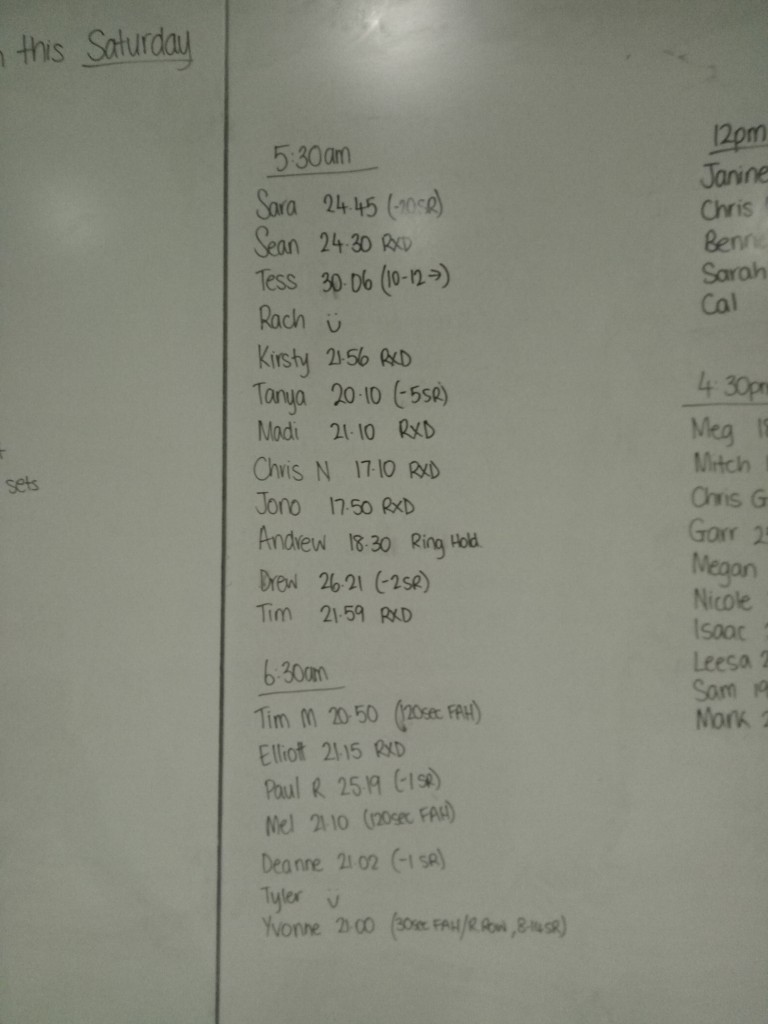 this Saturday
sets
5:30am
Sara 24.45 (-20SR)
Sean 24.30 RXD
Tess 30.06 (10-12→)
Rach ü
Kirsty 21.56 RXD
Tanya 20.10 (-5SR)
Madi 21.10 RXD
Chris N 17.10 RXD
Jono 17.50 RXD
Andrew 18.30 Ring Hold
Drew 26.21 (-2SR)
Tim 21.59 RXD
6:30am
Tim M 20.50 (120sec FAH)
Elliott 21.15 RXD
Paul R 25.19 (-1SR)
Mel 21.10 (120sec FAH)
Deanne 21.02 (-1SR)
Tyler ü
Yvonne 21.00 (30sec FAH/R.Row, SR)
12pm
Janine
Chris
Sarah
Cal
4:30pm
Meg 18
Mitch
Chris G
Garr 2
Megan
Nicole
Isaac
Leesa 2
Sam 19
Mark 2